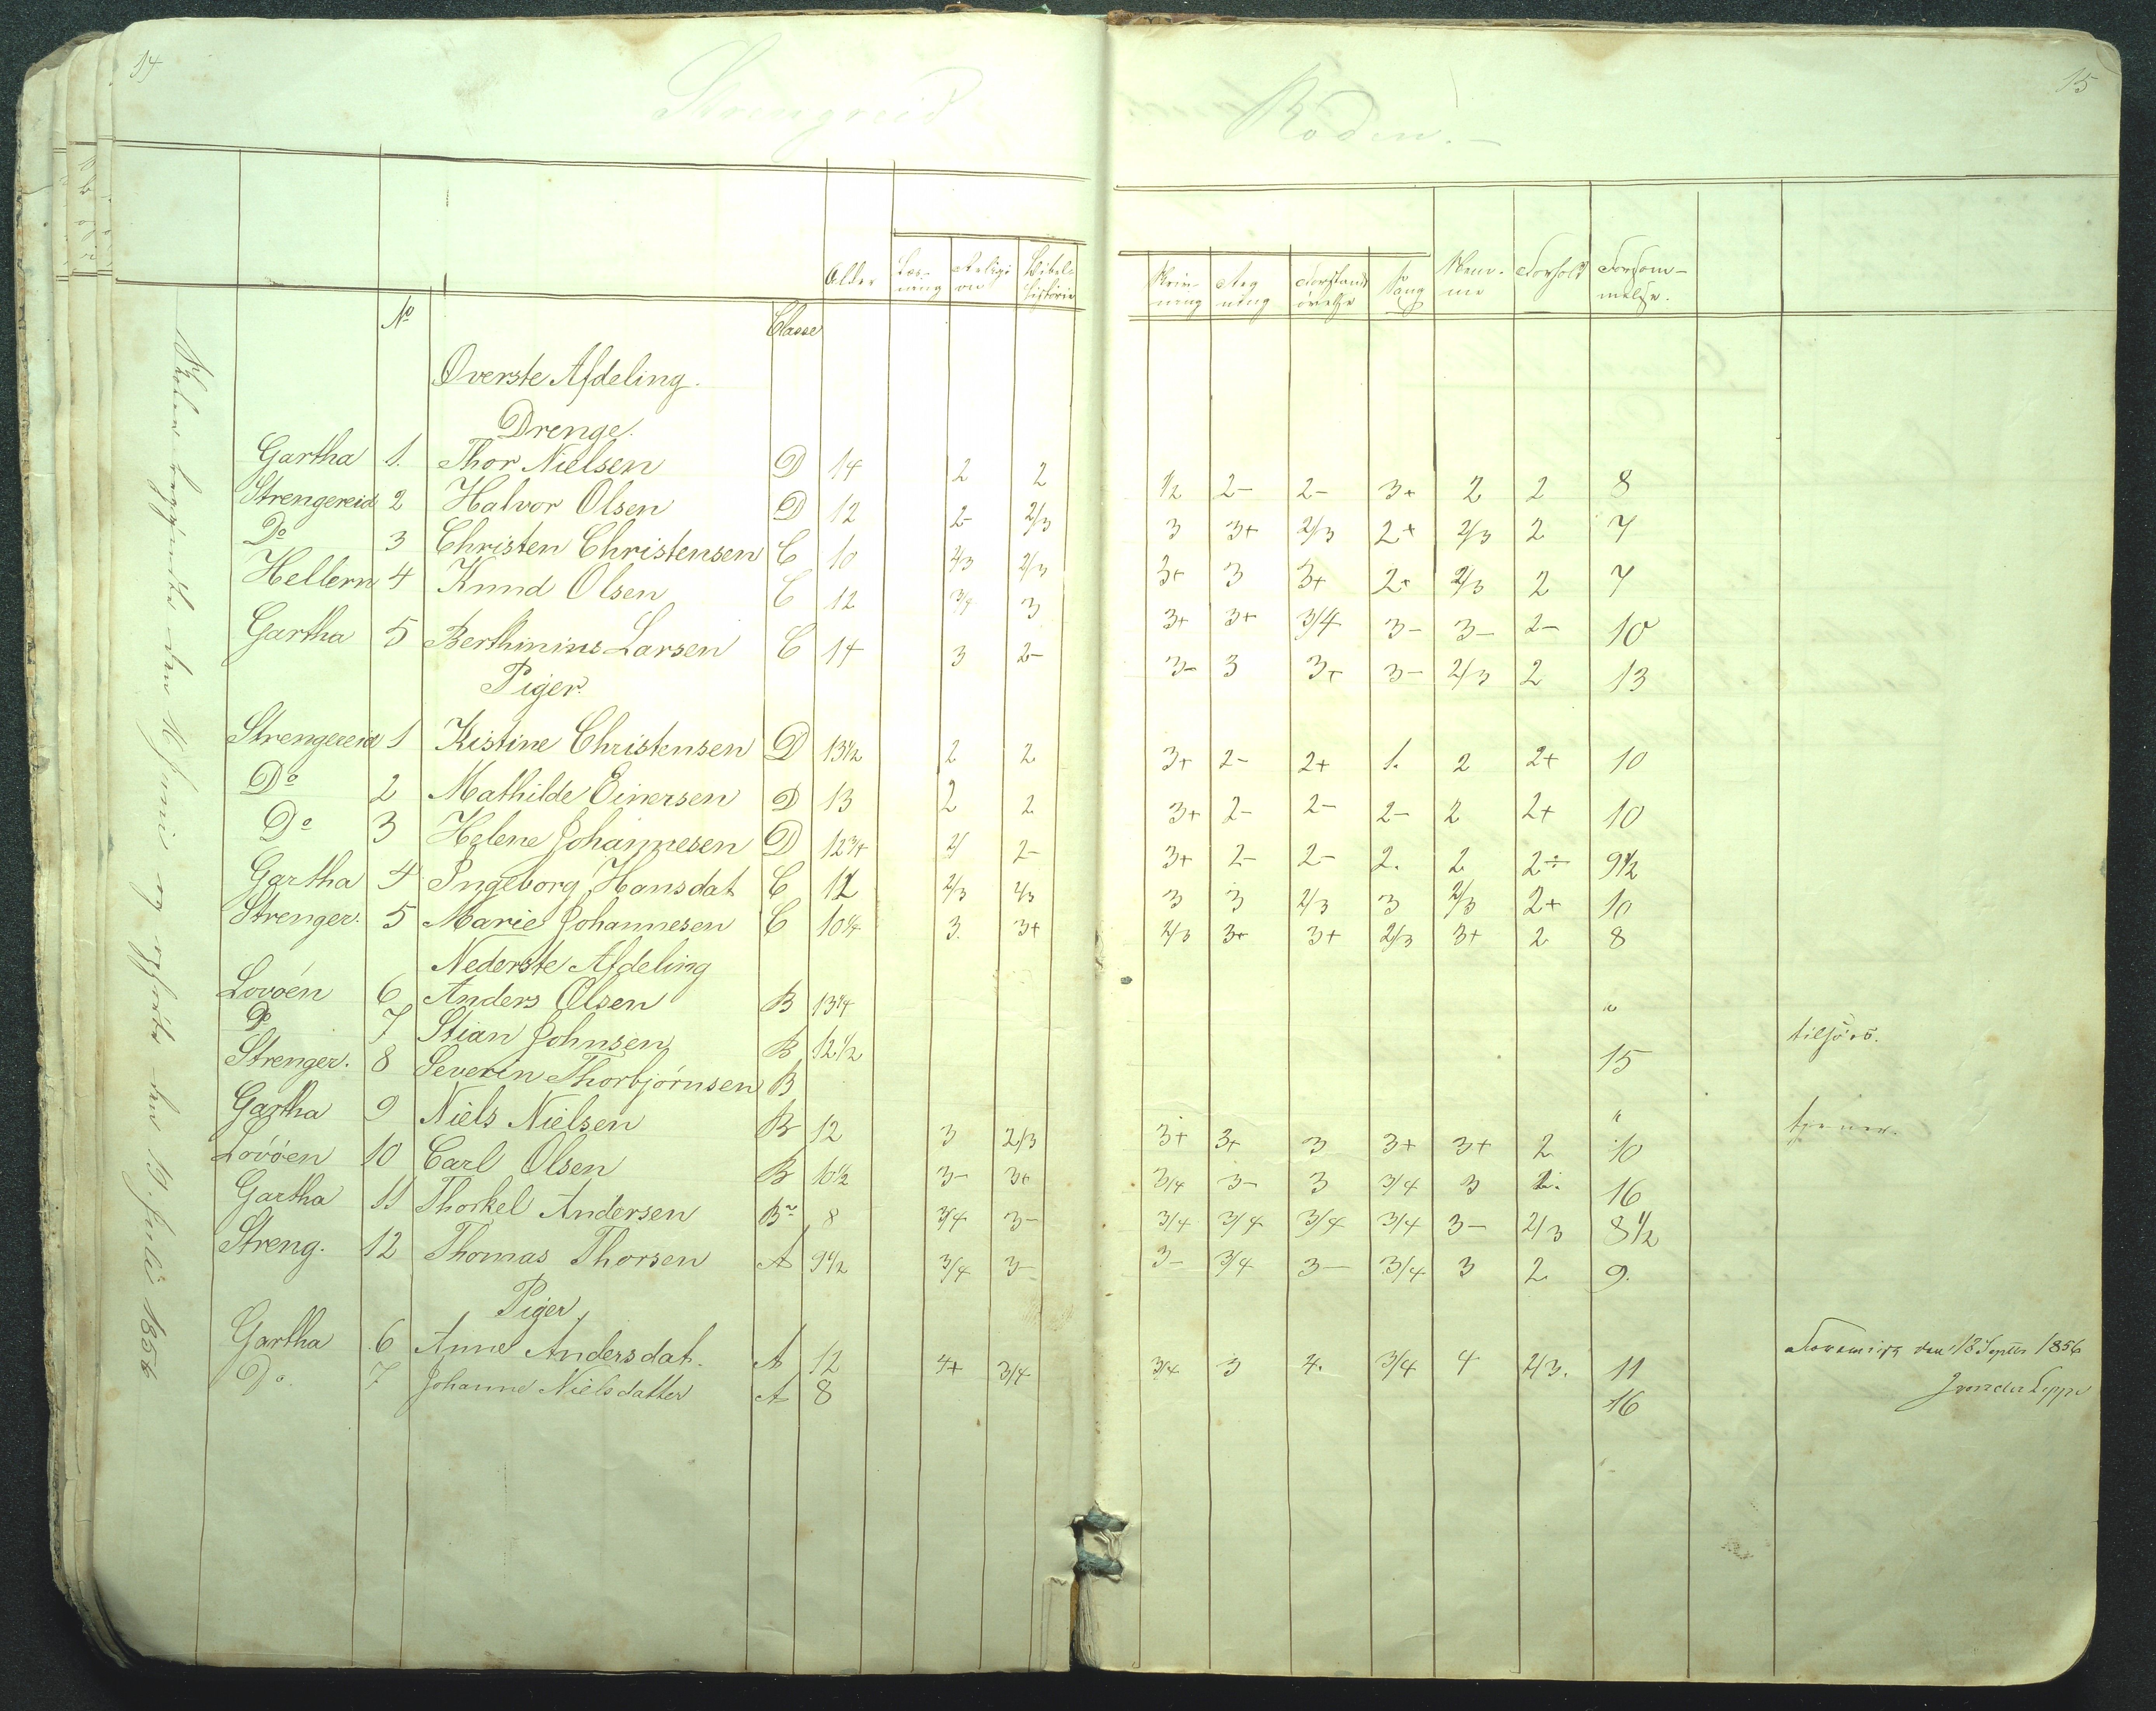 14
15
Strengreid Roden.-
Alder Læsning Religion Bibelhistorie Skrivning Regning Forstandsøvelse Sang Nemme Forhold Forsømmelse.
No Classe
Øverste Afdeling.
Drenge.
Gartha 1. Thor Nielsen D 14 2 2 1/2 2- 2- 3+ 2 2 8
Strengereid 2 Halvor Olsen D 12 2- 2/3 3 3+ 2/3 2+ 2/3 2 7
Do 3 Christen Christensen C 10 2/3 2/3 3+ 3 3+ 2+ 2/3 2 7
Hellern 4 Knud Olsen C 12 3/4 3 3+ 3+ 3/4 3- 3- 2- 10
Gartha 5 Berthinius Larsen C 14 3 2- 3- 3 3+ 3- 2/3 2 13
Piger.
Strengereid 1 Kistine Christensen D 13 1/2 2 2 3+ 2- 2+ 1. 2 2+ 10
Do 2 Mathilde Einersen D 13 2 2 3+ 2- 2- 2- 2 2+ 10
Do 3 Helene Johannesen D 12 3/4 2/ 2- 3+ 2- 2- 2. 2 2÷ 9 1/2
Gartha 4 Ingeborg Hansdat C 12 2/3 2/3 3 3 2/3 3 2/3 2+ 10
Strenger. 5 Marie Johannesen C 10 1/4 3. 3+ 2/3 3+ 3+ 2/3 3+ 2 8
Nederste Afdeling
Lovöen 6 Anders Olsen B 13 1/4 "
Do 7 Stian Johnsen B 12 1/2 15 tilsøes.
Strenger. 8 Severin Thorbjørnsen B "
Gartha 9 Niels Nielsen B 12 3 2/3 3+ 3+ 3 3+ 3+ 2 10
Lovöen 10 Carl Olsen B 10 1/2 3- 3+ 3/4 3- 3 3/4 3 2. 16
Gartha 11 Thorkel Andersen B 8 3/4 3- 3/4 3/4 3/4 3/4 3- 2/3 8 1/2
Streng. 12 Thomas Thorsen A 9 1/2 3/4 3- 3- 3/4 3- 3/4 3 2 9.
Piger,
Gartha 6 Anne Andersdat. A 12 4+ 3/4 3/4 3 4. 3/4 4 2/3. 11
Do. 7 Johanne Nielsdatter A 8 16
den 18 Septbr 1856
J von der Lippe
Skolen begyndte den 16 Juni og ophørte den 12. Juli 1856